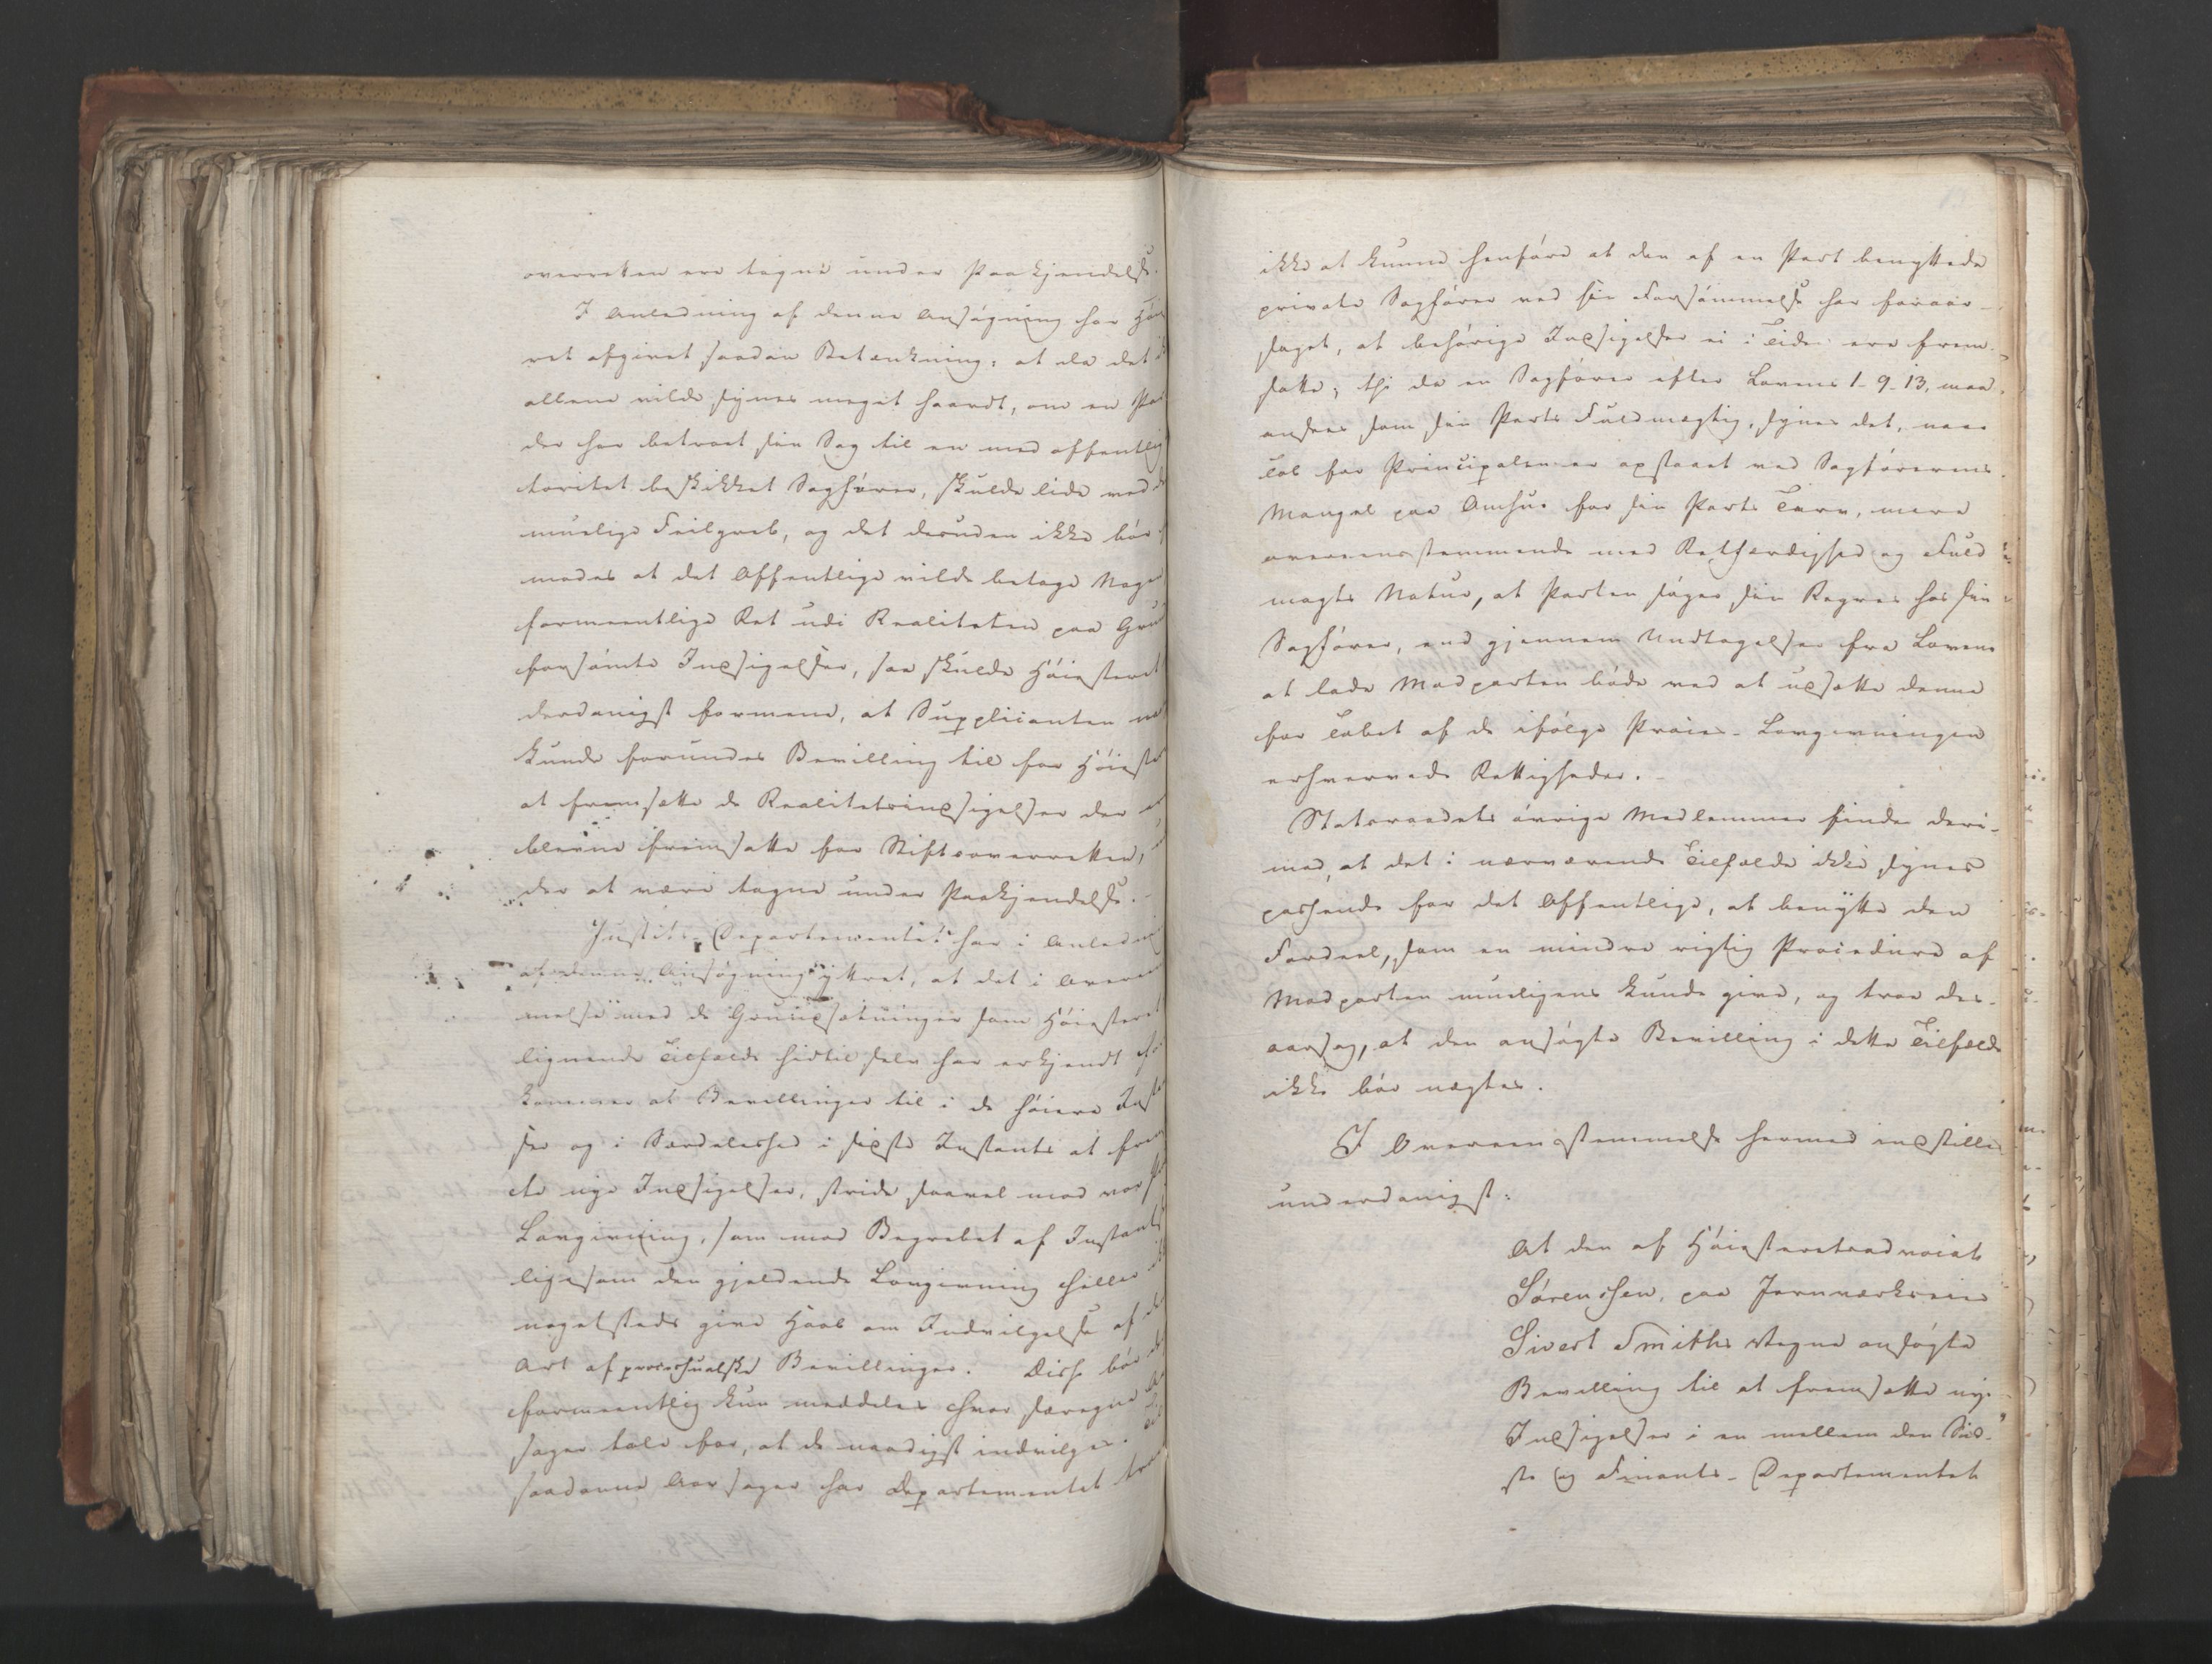 overretten ere tagne under Paakjendelse.
I Anledning af denne Ansøgning har Høie
ret afgivet saadan Betænkning: at da det i
allene vilde synes meget haardt, om en Par
der har betroet sin Sag til en med offentlig
toritet beskikket Sagfører, skulde lide ved d
muelige Feilgreb, og det desuden ikke bør f
modes at det Offentlige vilde betage Nogen
formeentlige Ret udi Realiteten paa Grun
forsømte Indsigelser, saa skulde Høiesteret
derdanigst formene, at Supplicanten
kunde forundes Bevilling til for Høieste
at fremsætte de Realitetsindsigelser der
blevne fremsatte for Stiftsoverretten,
der at være tagne under Paakjendelse.
Justits-Departementet har i Anledni
af denne Ansøgning yttret, at det i Overeen
melse med de Grundsætninger som Høiesteret
lignende Tilfælde hidtil selv har erkjendt
kommer at Bevillinger til i de høiere Insta
ser og i Særdeleshed i sidste Instants at frem
te nye Indsigelser, stride saavel mod vor
Lovgivning, som mod Begrebet af Instants
ligesom den gjeldende Lovgivning heller
nogetsteds give Haab om Indvilgelse af de
Art af processualske Bevillinger. Disse bør
formeentlig kun meddeles hvor særegne Aa
sager tale for, at de naadigst indvilges. Til
saadanne Aarsager har Departementet troe
ikke at kunne henføre at den af en Part benyttede
private Sagfører ved sin Forsømmelse har foraar-
saget, at behørige Indsigelser ei i Tide ere frem-
satte; thi da en Sagfører efter Lovens 1-9-13, maa
ansees som sin Parts Fuldmægtig, synes det, naar
Tab for Principalen er opstaaet ved Sagførerens
Mangel paa Omhue for sin Parts Tarv, mere
overeensstemmende med Retfærdighed og Fuld
magts Natur, at Parten søger sin Regres hos sin
Sagfører, end gjennem Undtagelser fra Loven
at lade Modparten bøde ved at udsætte denne
for Tabet af de ifølge Proces-Lovgivningen
erhvervede Rettigheder.
Statsraadets øvrige Medlemmer finde deri-
mod, at det i nærværende Tilfælde ikke synes
passende for det Offentlige, at benytte den
Fordeel, som en mindre rigtig Procedure af
Modparten mueligens kunde give, og troe des-
aarsag, at den ansøgte Bevilling i dette Tilfælde
ikke bør nægtes.
I Overeensstemmelse hermed indstilles
underdanigst:
At den af Høiesteretsadvocat
Sørenssen, paa Jernværkseier
Sivert Smiths Vegne ansøgte
Bevilling til at fremsætte nye
Indsigelser i en mellem den Sid-
ste og Finants-Departementet